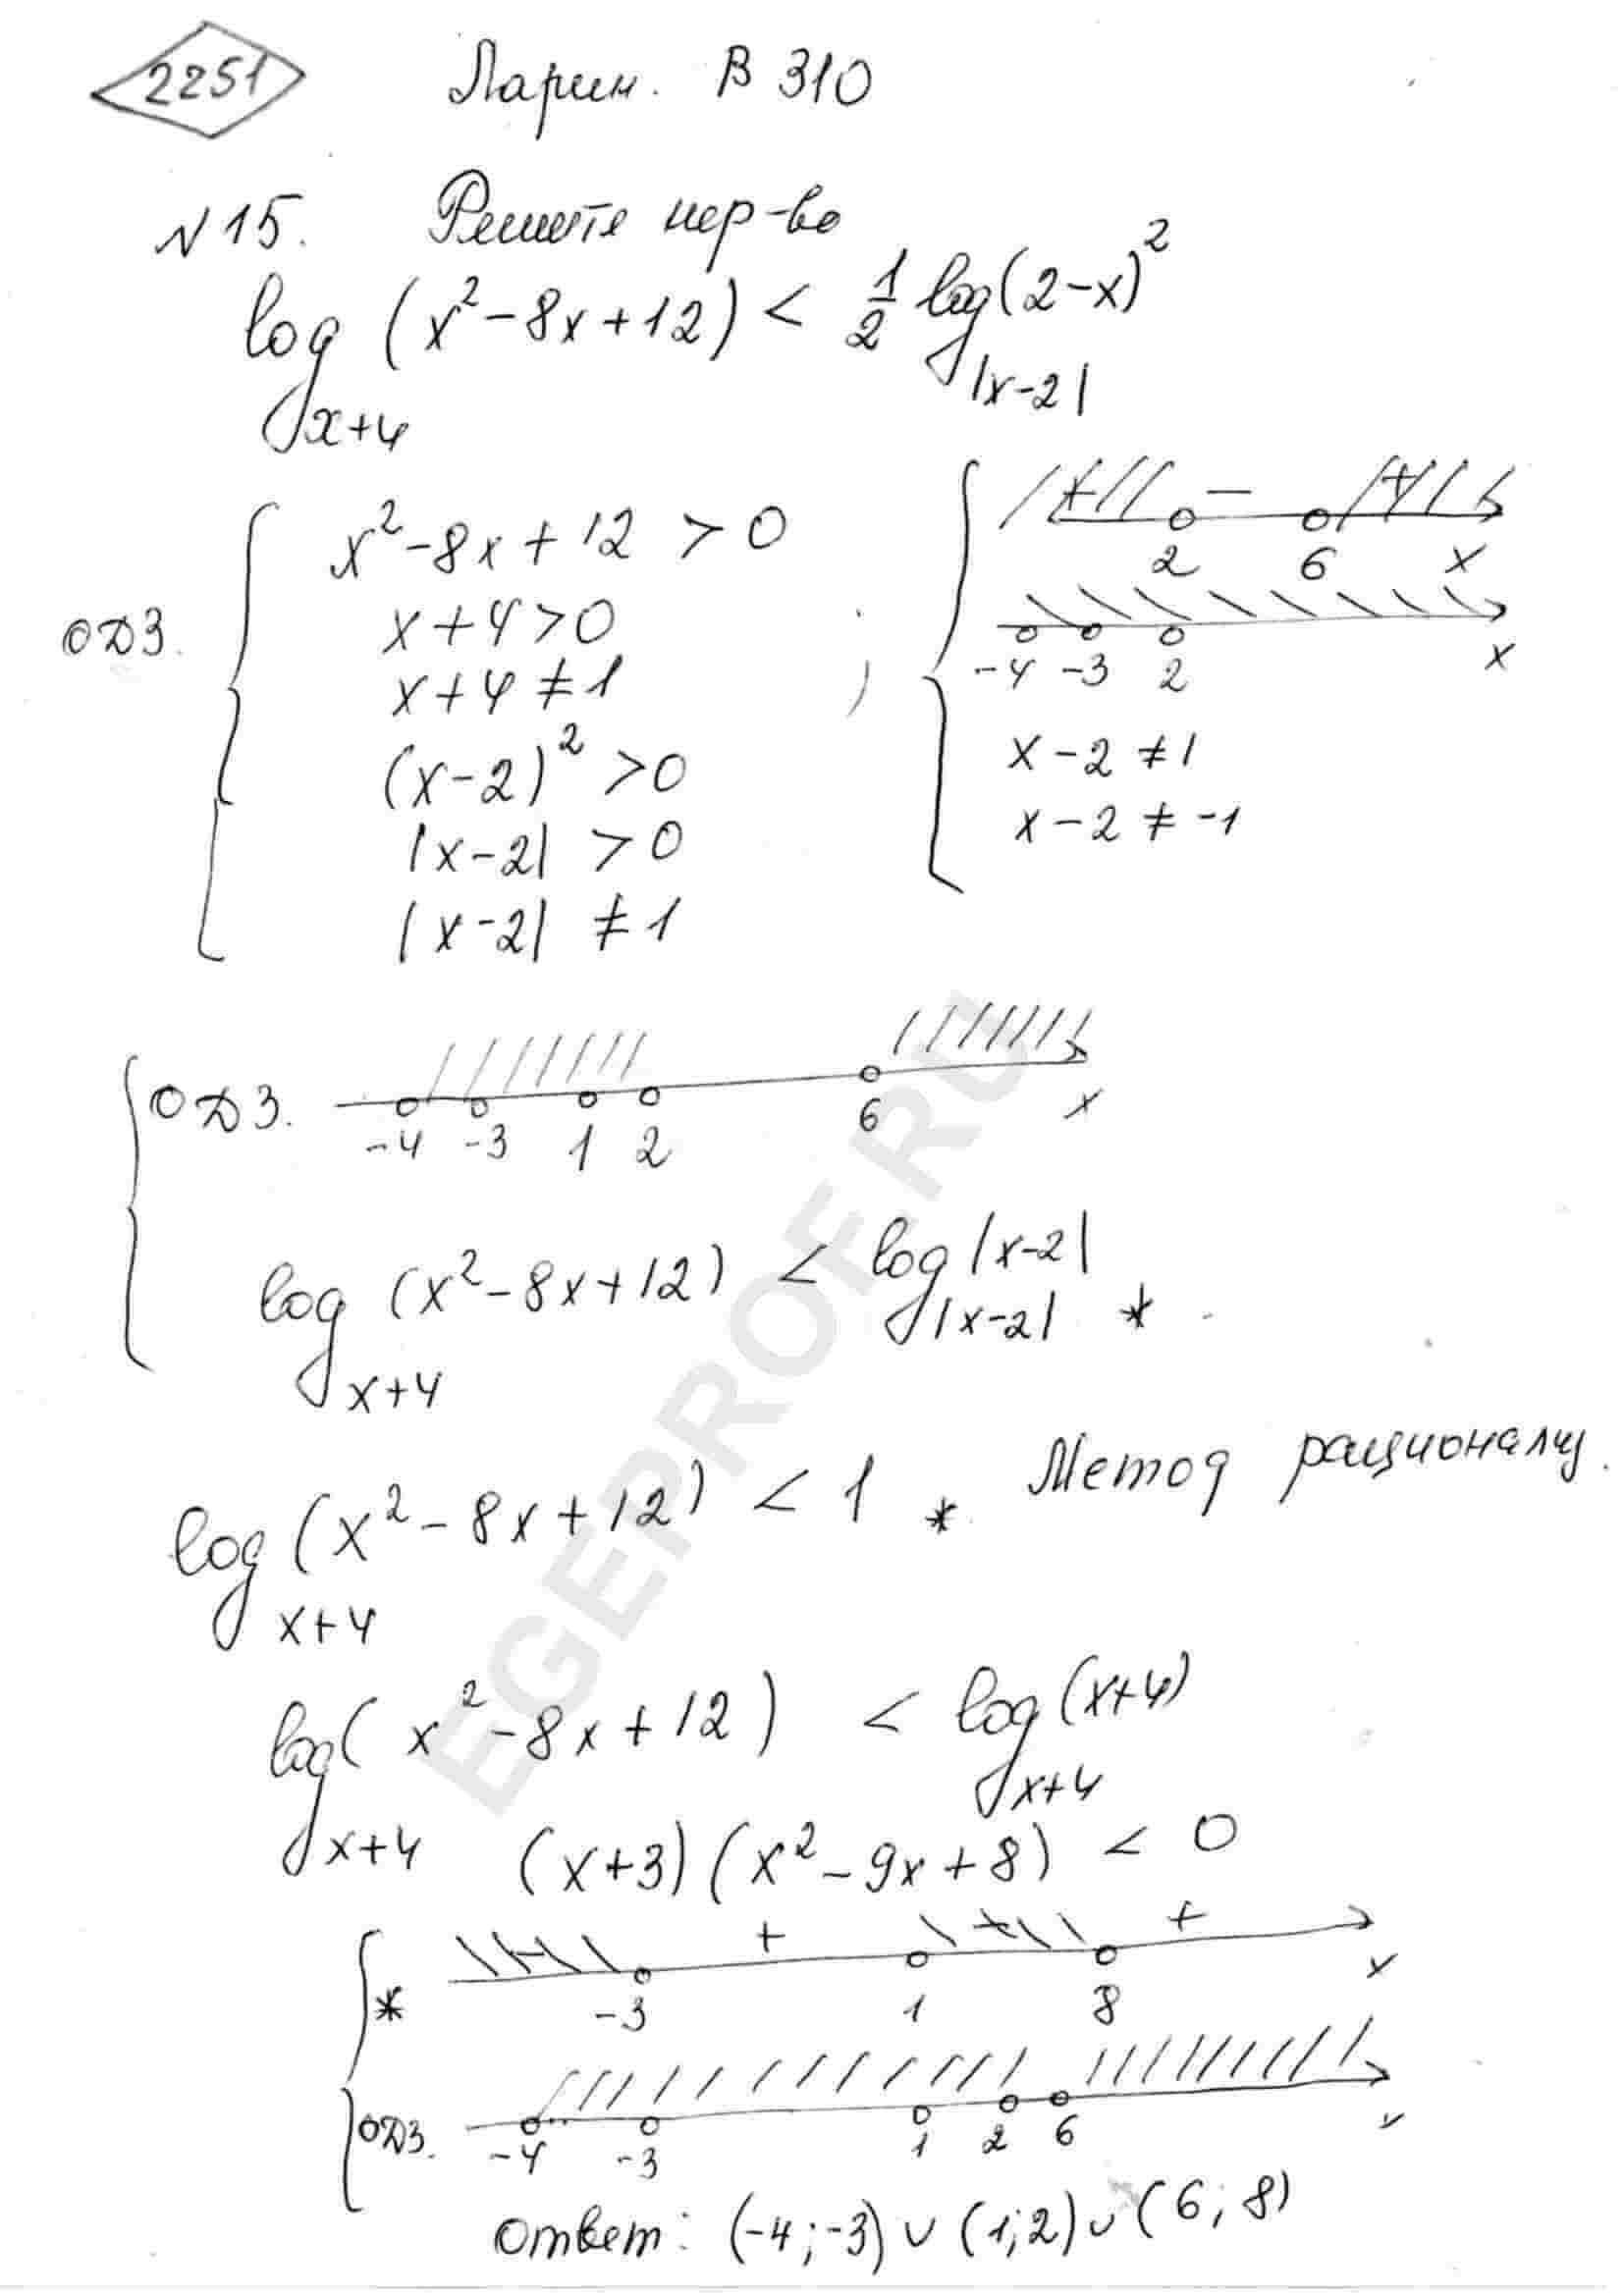 2251 Ларин. В 310
N 15. Решите нер-во
log_{x+4} (x² - 8x + 12) < 1/2 log_{|x-2|} (2-x)²
ОДЗ. { x² - 8x + 12 > 0
x + 4 > 0
x + 4 ≠ 1
(x-2)² > 0
|x-2| > 0
|x-2| ≠ 1
; { + 2 − 6 + x
-4 -3 2 x
x - 2 ≠ 1
x - 2 ≠ -1
{ ОДЗ. -4 -3 1 2 6 x
log_{x+4} (x² - 8x + 12) < log_{|x-2|} |x-2| *
log_{x+4} (x² - 8x + 12) < 1 * Метод рационализ.
log_{x+4} (x² - 8x + 12) < log_{x+4} (x+4)
(x+3)(x² - 9x + 8) < 0
{ * − -3 + 1 − 8 + x
ОДЗ. -4 -3 1 2 6 x
Ответ: (-4; -3) ∪ (1; 2) ∪ (6; 8)
EGEPROF.RU